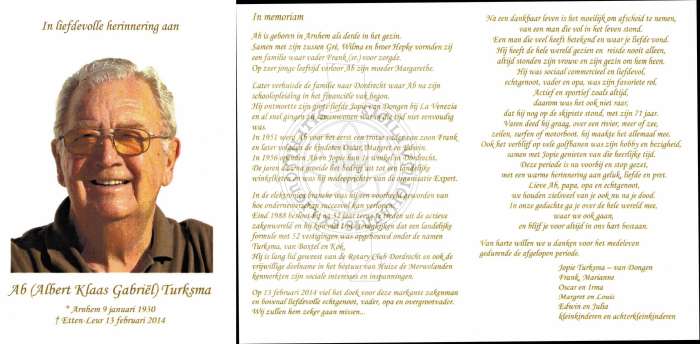 In liefdevolle herinnering aan
Ab (Albert Klaas Gabriël) Turksma
* Arnhem 9 januari 1930
† Etten-Leur 13 februari 2014
In memoriam
Ab is geboren in Arnhem als derde in het gezin.
Samen met zijn zussen Gré, Wilma en broer Hepke vormden zij
een familie waar vader Frank (sr.) voor zorgde.
Op zeer jonge leeftijd verloor Ab zijn moeder Margarethe.
Later verhuisde de familie naar Dordrecht waar Ab na zijn
schoolopleiding in het financiële vak begon.
Hij ontmoette zijn grote liefde Jopie van Dongen bij La Venezia
en al snel gingen zij samenwonen wat in die tijd niet eenvoudig
was.
In 1951 werd Ab voor het eerst een trotse vader van zoon Frank
en later volgden de kinderen Oscar, Margret en Edwin.
In 1956 openden Ab en Jopie hun 1e winkel in Dordrecht.
De jaren daarna groeide het bedrijf uit tot een landelijke
winkelketen en was hij medeoprichter van de organisatie Expert.
In de elektronica branche was hij een voorbeeld geworden van
hoe ondernemerschap succesvol kan verlopen.
Eind 1988 besloot hij na 32 jaar terug te treden uit de actieve
zakenwereld en hij kon met trots terugkijken dat een landelijke
formule met 52 vestigingen was opgebouwd onder de namen
Turksma, van Boxtel en Kok.
Hij is lang lid geweest van de Rotary Club Dordrecht en ook de
vrijwillige deelname in het bestuur van Huize de Merwelanden
kenmerkten zijn sociale interesses en inspanningen.
Op 13 februari 2014 viel het doek voor deze markante zakenman
en bovenal liefdevolle echtgenoot, vader, opa en overgrootvader.
Wij zullen hem zeker gaan missen...
Na een dankbaar leven is het moeilijk om afscheid te nemen,
van een man die vol in het leven stond.
Een man die veel heeft betekend en waar je liefde vond.
Hij heeft de hele wereld gezien en reisde nooit alleen,
altijd stonden zijn vrouw en zijn gezin om hem heen.
Hij was sociaal commercieel en liefdevol,
echtgenoot, vader en opa, was zijn favoriete rol.
Actief en sportief zoals altijd,
daarom was het ook niet raar,
dat hij nog op de skipiste stond, met zijn 71 jaar.
Varen deed hij graag, over een rivier, meer of zee,
zeilen, surfen of motorboot, hij maakte het allemaal mee.
Ook het verblijf op vele golfbanen was zijn hobby en bezigheid,
samen met Jopie genieten van die heerlijke tijd.
Deze periode is nu voorbij en stop gezet,
met een warme herinnering aan geluk, liefde en pret.
Lieve Ab, papa, opa en echtgenoot,
we houden zielsveel van je ook nu na je dood.
In onze gedachte ga je over de hele wereld mee,
waar we ook gaan,
en blijf je voor altijd in ons hart bestaan.
Van harte willen we u danken voor het medeleven
gedurende de afgelopen periode.
Jopie Turksma – van Dongen
Frank, Marianne
Oscar en Irma
Margret en Louis
Edwin en Julia
kleinkinderen en achterkleinkinderen